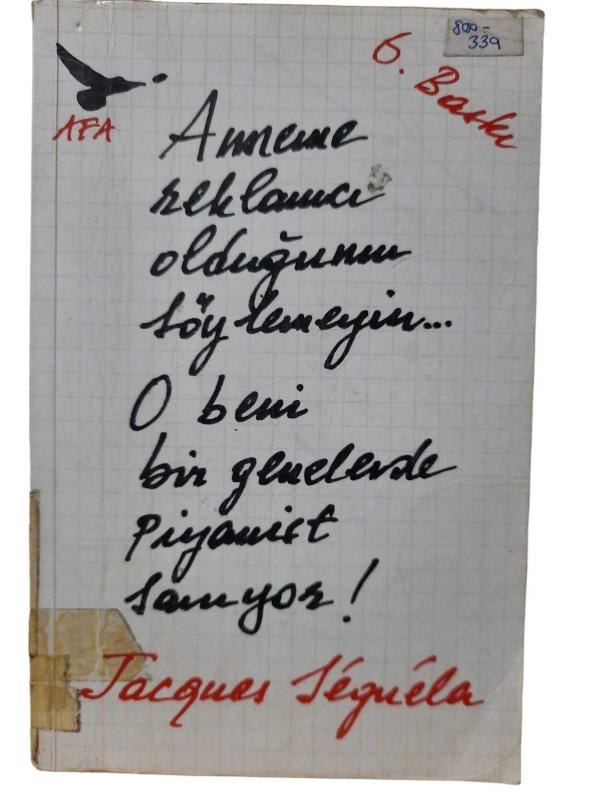 339
6. Baskı
AFA
Anneme
reklamcı
olduğumu
söylemeyin...
O beni
bir genelevde
Piyanist
sanıyor!
Jacques Séguéla